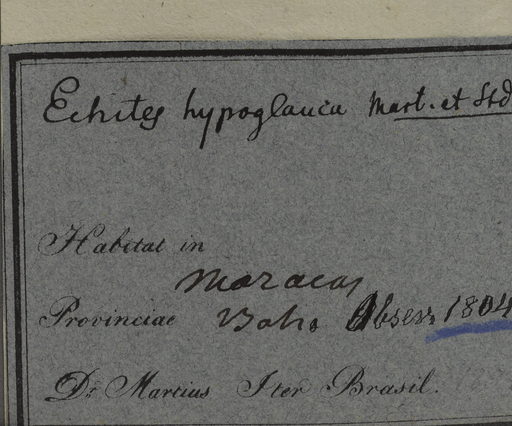 Echites hypoglauca Mart. et Std
Habitat in
Maracas
Provinciae Bahia Observ. 1804
Dr. Martius Iter Brasil.